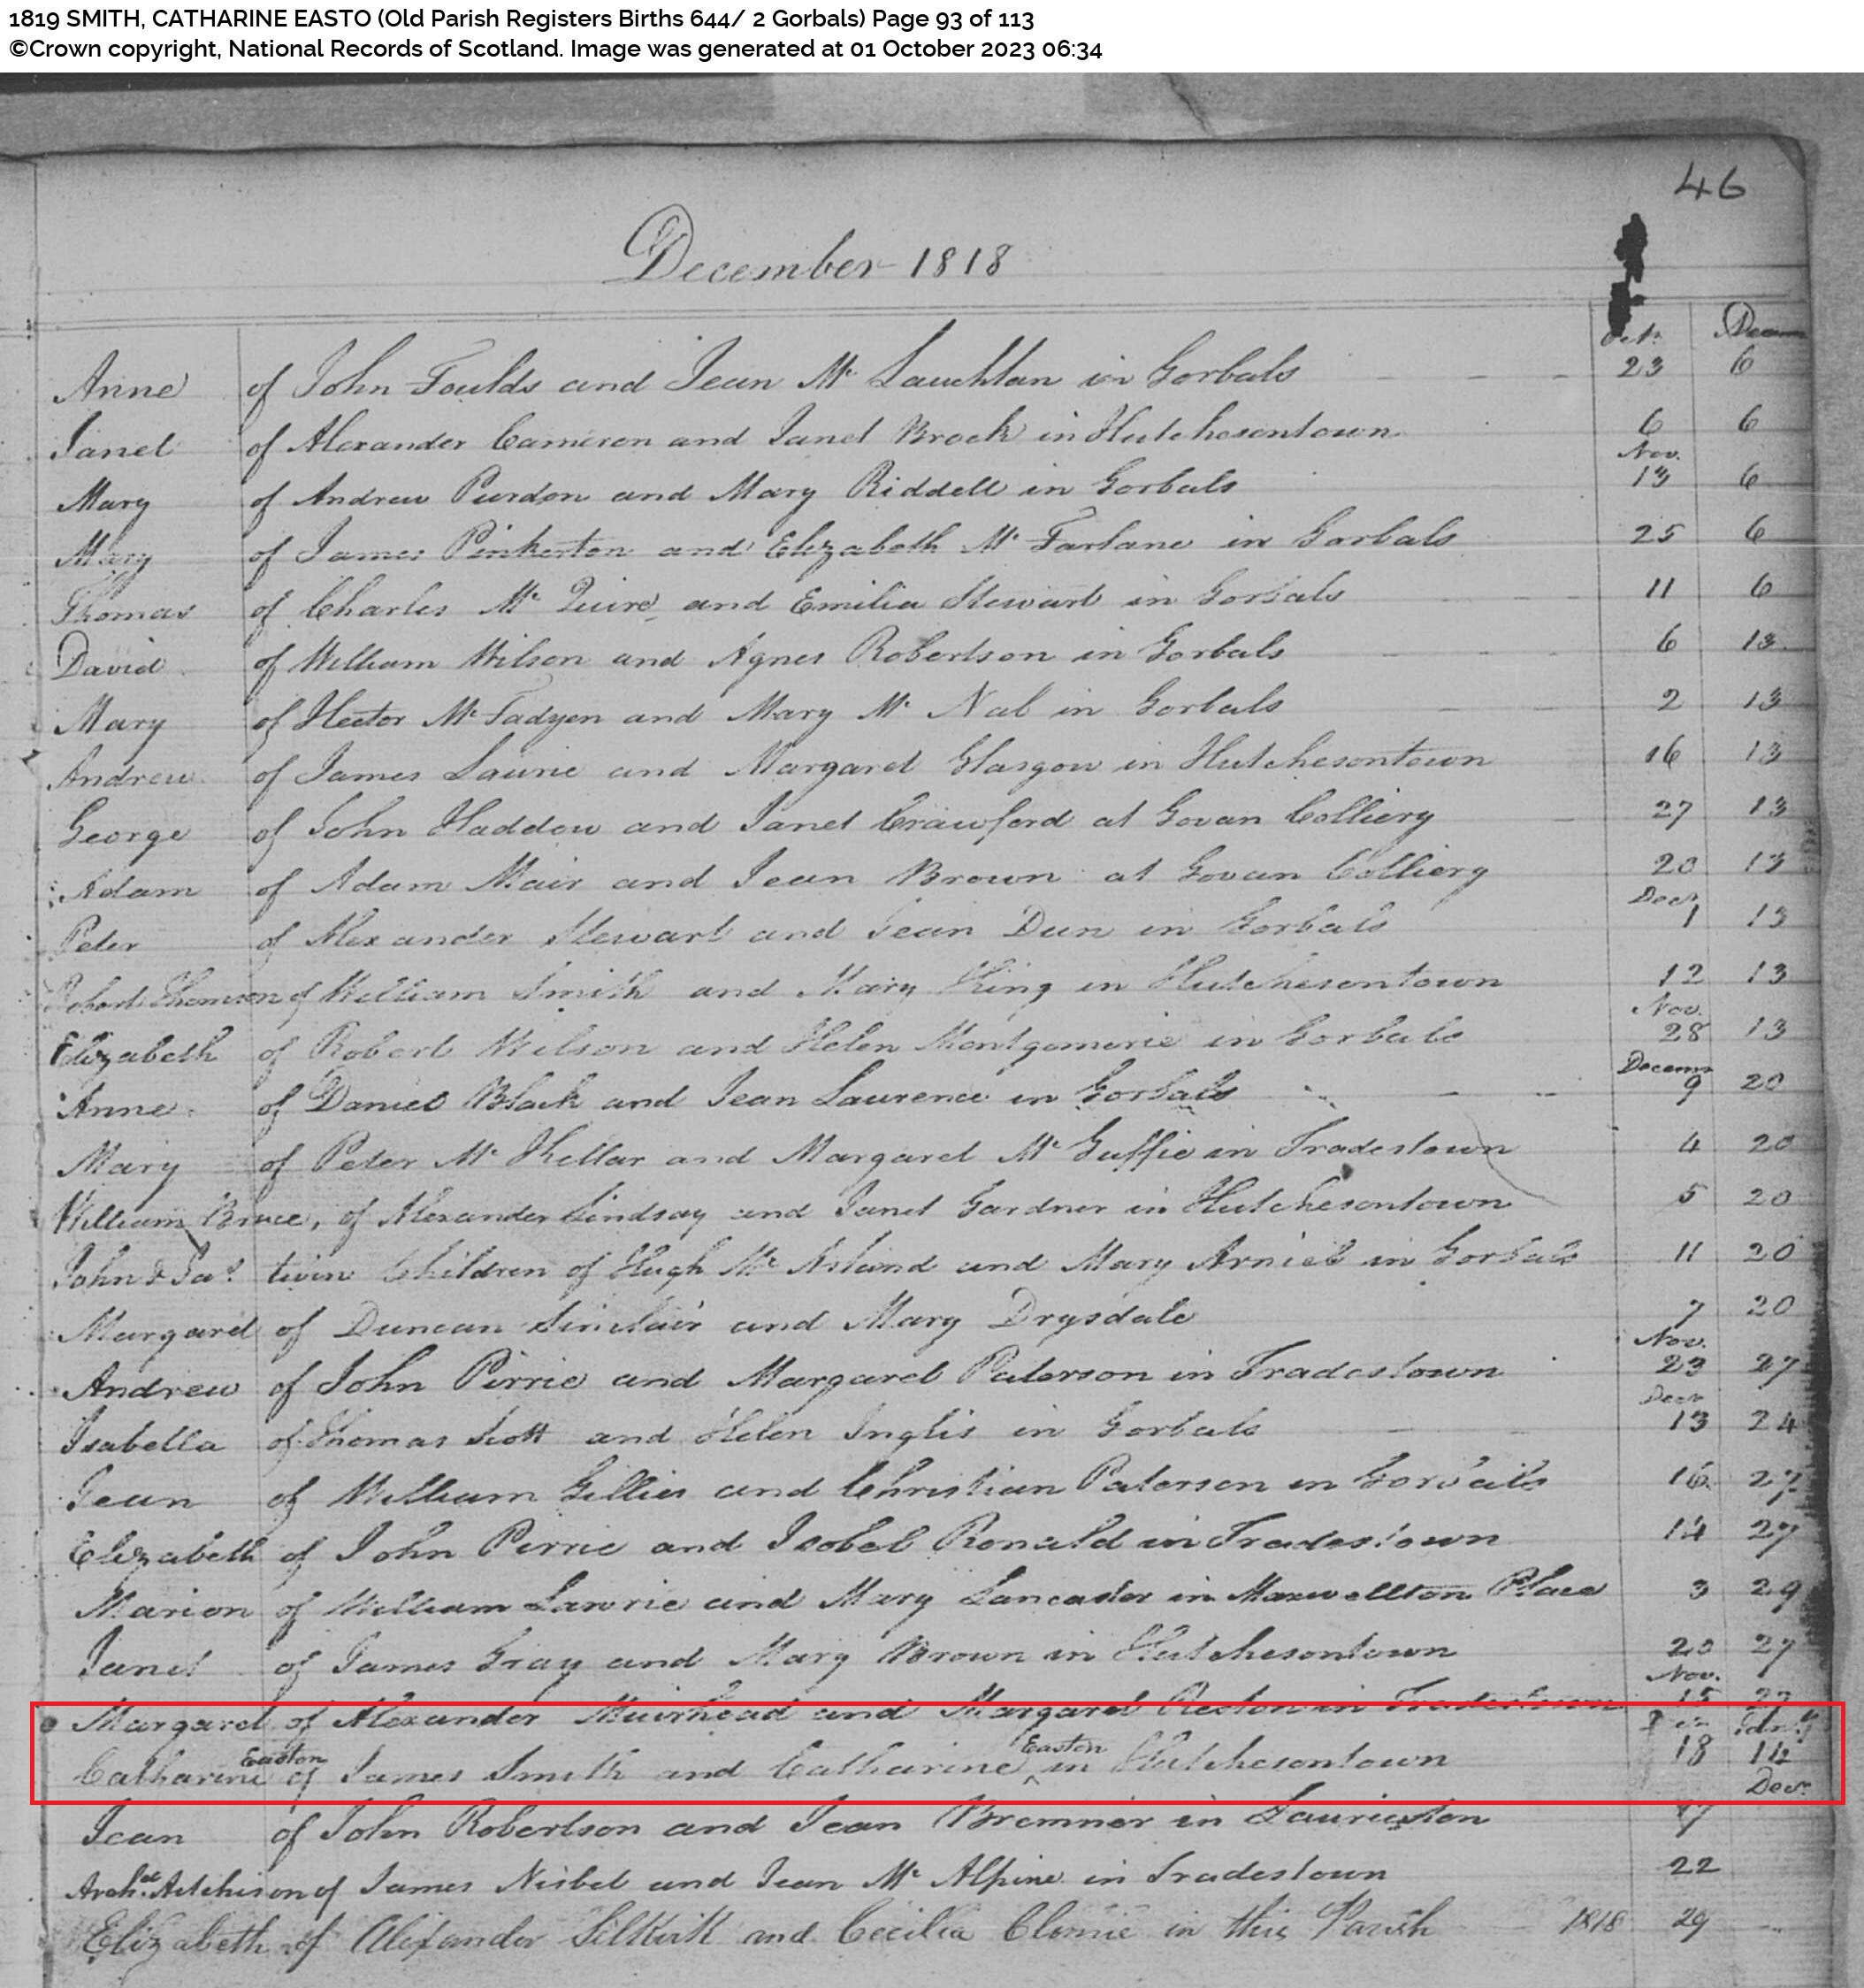 1819 SMITH, CATHARINE EASTO (Old Parish Registers Births 644/ 2 Gorbals) Page 93 of 113
©Crown copyright, National Records of Scotland. Image was generated at 01 October 2023 06:34
46
December 1818
Oct. Decem
Anne of John Foulds and Jean Mc Lauchlan in Gorbals 23 6
Janet of Alexander Cameron and Janet Brock in Hutchesontown 6 6
Nov.
Mary of Andrew Purdon and Mary Riddell in Gorbals 13 6
Mary of James Pinkerton and Elizabeth Mc Farlane in Gorbals 25 6
Thomas of Charles Mc Quire and Emilia Stewart in Gorbals 11 6
David of William Wilson and Agnes Robertson in Gorbals 6 13
Mary of Hector Mc Fadyen and Mary Mc Nab in Gorbals 2 13
Andrew of James Laurie and Margaret Glasgow in Hutchesontown 16 13
George of John Haddow and Janet Crawford at Govan Colliery 27 13
Adam of Adam Mair and Jean Brown at Govan Colliery 20 13
Decr
Peter of Alexander Stewart and Jean Dun in Gorbals 1 13
Robert Thomson of William Smith and Mary King in Hutchesontown 12 13
Nov.
Elizabeth of Robert Wilson and Helen Montgomerie in Gorbals 28 13
Decem
Anne of Daniel Black and Jean Laurence in Gorbals 9 20
Mary of Peter Mc Kellar and Margaret Mc Guffie in Tradestown 4 20
William Bruce, of Alexander Lindsay and Janet Gardner in Hutchesontown 5 20
John & Jas. twin Children of Hugh Mc and Mary in Gorbals 11 20
Margaret of Duncan Sinclair and Mary Drysdale 7 20
Nov.
Andrew of John Pirrie and Margaret Paterson in Tradestown 23 27
Decr
Isabella of Thomas Scott and Helen Inglis in Gorbals 13 24
Jean of William Gillies and Christian Paterson in Gorbals 16 27
Elizabeth of John Pirrie and Isobel Ronald in Tradestown 14 27
Marion of William Lawrie and Mary Lancaster in Maxwellton Place 3 29
Janet of James Gray and Mary Brown in Hutchesontown 20 27
Nov.
Margaret of Alexander Muirhead and Margaret Reston in Tradestown 15 27
Easton Easton
Catharine of James Smith and Catharine ^ in Hutchesontown 18
Decr
Jean of John Robertson and Jean Bremner in Laurieston 17
Archd. Aitchison of James Nisbet and Jean Mc Alpine in Tradestown 22
Elizabeth of Alexander Selkirk and Cecilia in this Parish 1818 29